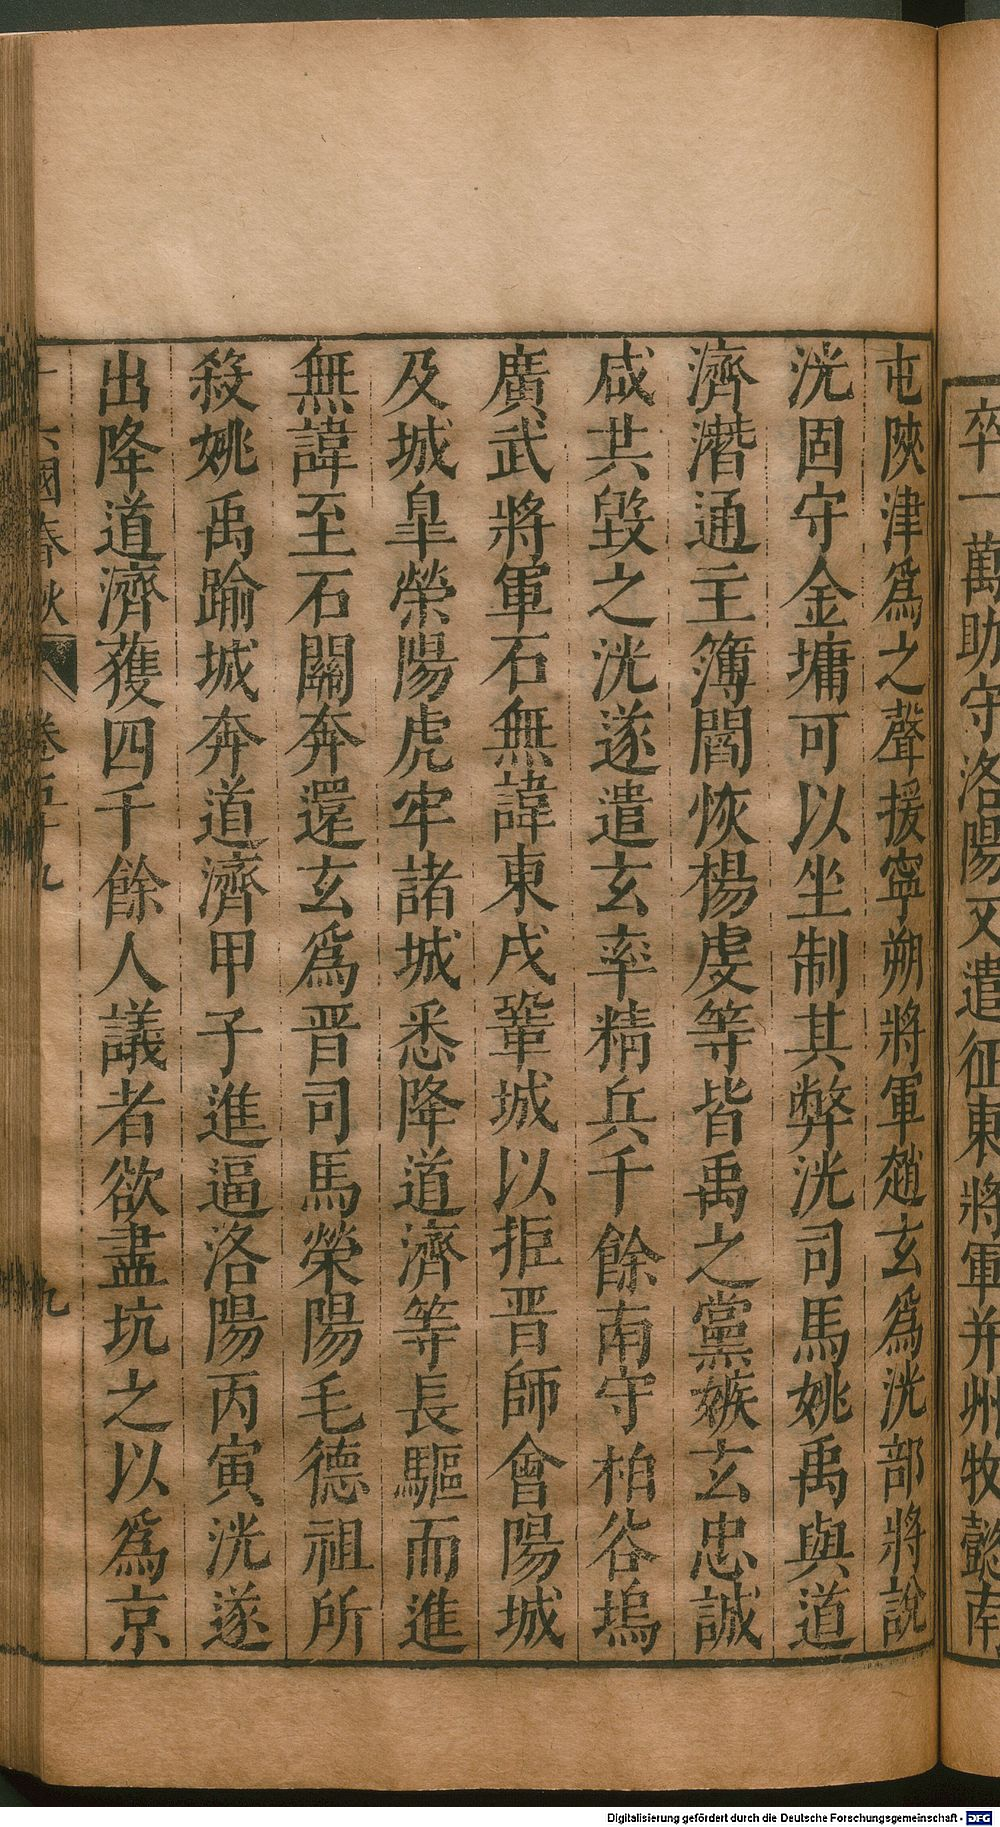 卒一萬助守洛陽又遣征東將軍并州牧懿南
屯陝津爲之聲援寧朔將軍趙玄爲洸部將說
洸固守金墉可以坐制其弊洸司馬姚禹與道
濟潛通主簿閻恢楊虔等皆禹之黨嫉玄忠誠
咸共毀之洸遂遣玄率精兵千餘南守柏谷塢
廣武將軍石無諱東戍鞏城以拒晋師會陽城
及城皐滎陽虎牢諸城悉降道濟等長驅而進
無諱至石關奔還玄爲晋司馬榮陽毛德祖所
殺姚禹踰城奔道濟甲子進逼洛陽丙寅洸遂
出降道濟獲四千餘人議者欲盡坑之以爲京
十六國春秋 卷五十九 九
Digitalisierung gefördert durch die Deutsche Forschungsgemeinschaft - DFG